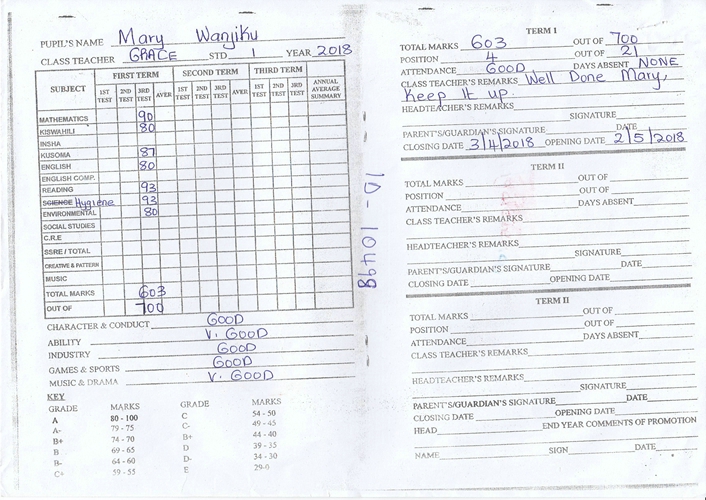 PUPIL'S NAME Mary Wanjiku
CLASS TEACHER GRACE STD. 1 YEAR 2018
SUBJECT FIRST TERM SECOND TERM THIRD TERM ANNUAL AVERAGE SUMMARY
1ST TEST 2ND TEST 3RD TEST AVER 1ST TEST 2ND TEST 3RD TEST AVER 1ST TEST 2ND TEST 3RD TEST
MATHEMATICS 90
KISWAHILI 80
INSHA
KUSOMA 87
ENGLISH 80
ENGLISH COMP.
READING 93
SCIENCE Hygiene 93
ENVIRONMENTAL 80
SOCIAL STUDIES
C.R.E
SSRE / TOTAL
CREATIVE & PATTERN
MUSIC
TOTAL MARKS 603
OUT OF 700
CHARACTER & CONDUCT GOOD
ABILITY V. GOOD
INDUSTRY GOOD
GAMES & SPORTS GOOD
MUSIC & DRAMA V. GOOD
KEY
GRADE MARKS GRADE MARKS
A 80 - 100 C 54 - 50
A- 79 - 75 C- 49 - 45
B+ 74 - 70 B+ 44 - 40
B 69 - 65 D 39 - 35
B- 64 - 60 D- 34 - 30
C+ 59 - 55 E 29-0
10 - 10498
TERM I
TOTAL MARKS 603 OUT OF 700
POSITION 4 OUT OF 21
ATTENDANCE GOOD DAYS ABSENT NONE
CLASS TEACHER'S REMARKS Well Done Mary,
Keep It up.
HEADTEACHER'S REMARKS
SIGNATURE
PARENT'S/GUARDIAN'S SIGNATURE DATE
CLOSING DATE 3/4/2018 OPENING DATE 2/5/2018
TERM II
TOTAL MARKS OUT OF
POSITION OUT OF
ATTENDANCE DAYS ABSENT
CLASS TEACHER'S REMARKS
HEADTEACHER'S REMARKS
SIGNATURE
PARENT'S/GUARDIAN'S SIGNATURE DATE
CLOSING DATE OPENING DATE
TERM II
TOTAL MARKS OUT OF
POSITION OUT OF
ATTENDANCE DAYS ABSENT
CLASS TEACHER'S REMARKS
HEADTEACHER'S REMARKS
SIGNATURE
PARENT'S/GUARDIAN'S SIGNATURE DATE
CLOSING DATE OPENING DATE
HEAD END YEAR COMMENTS OF PROMOTION
NAME SIGN DATE